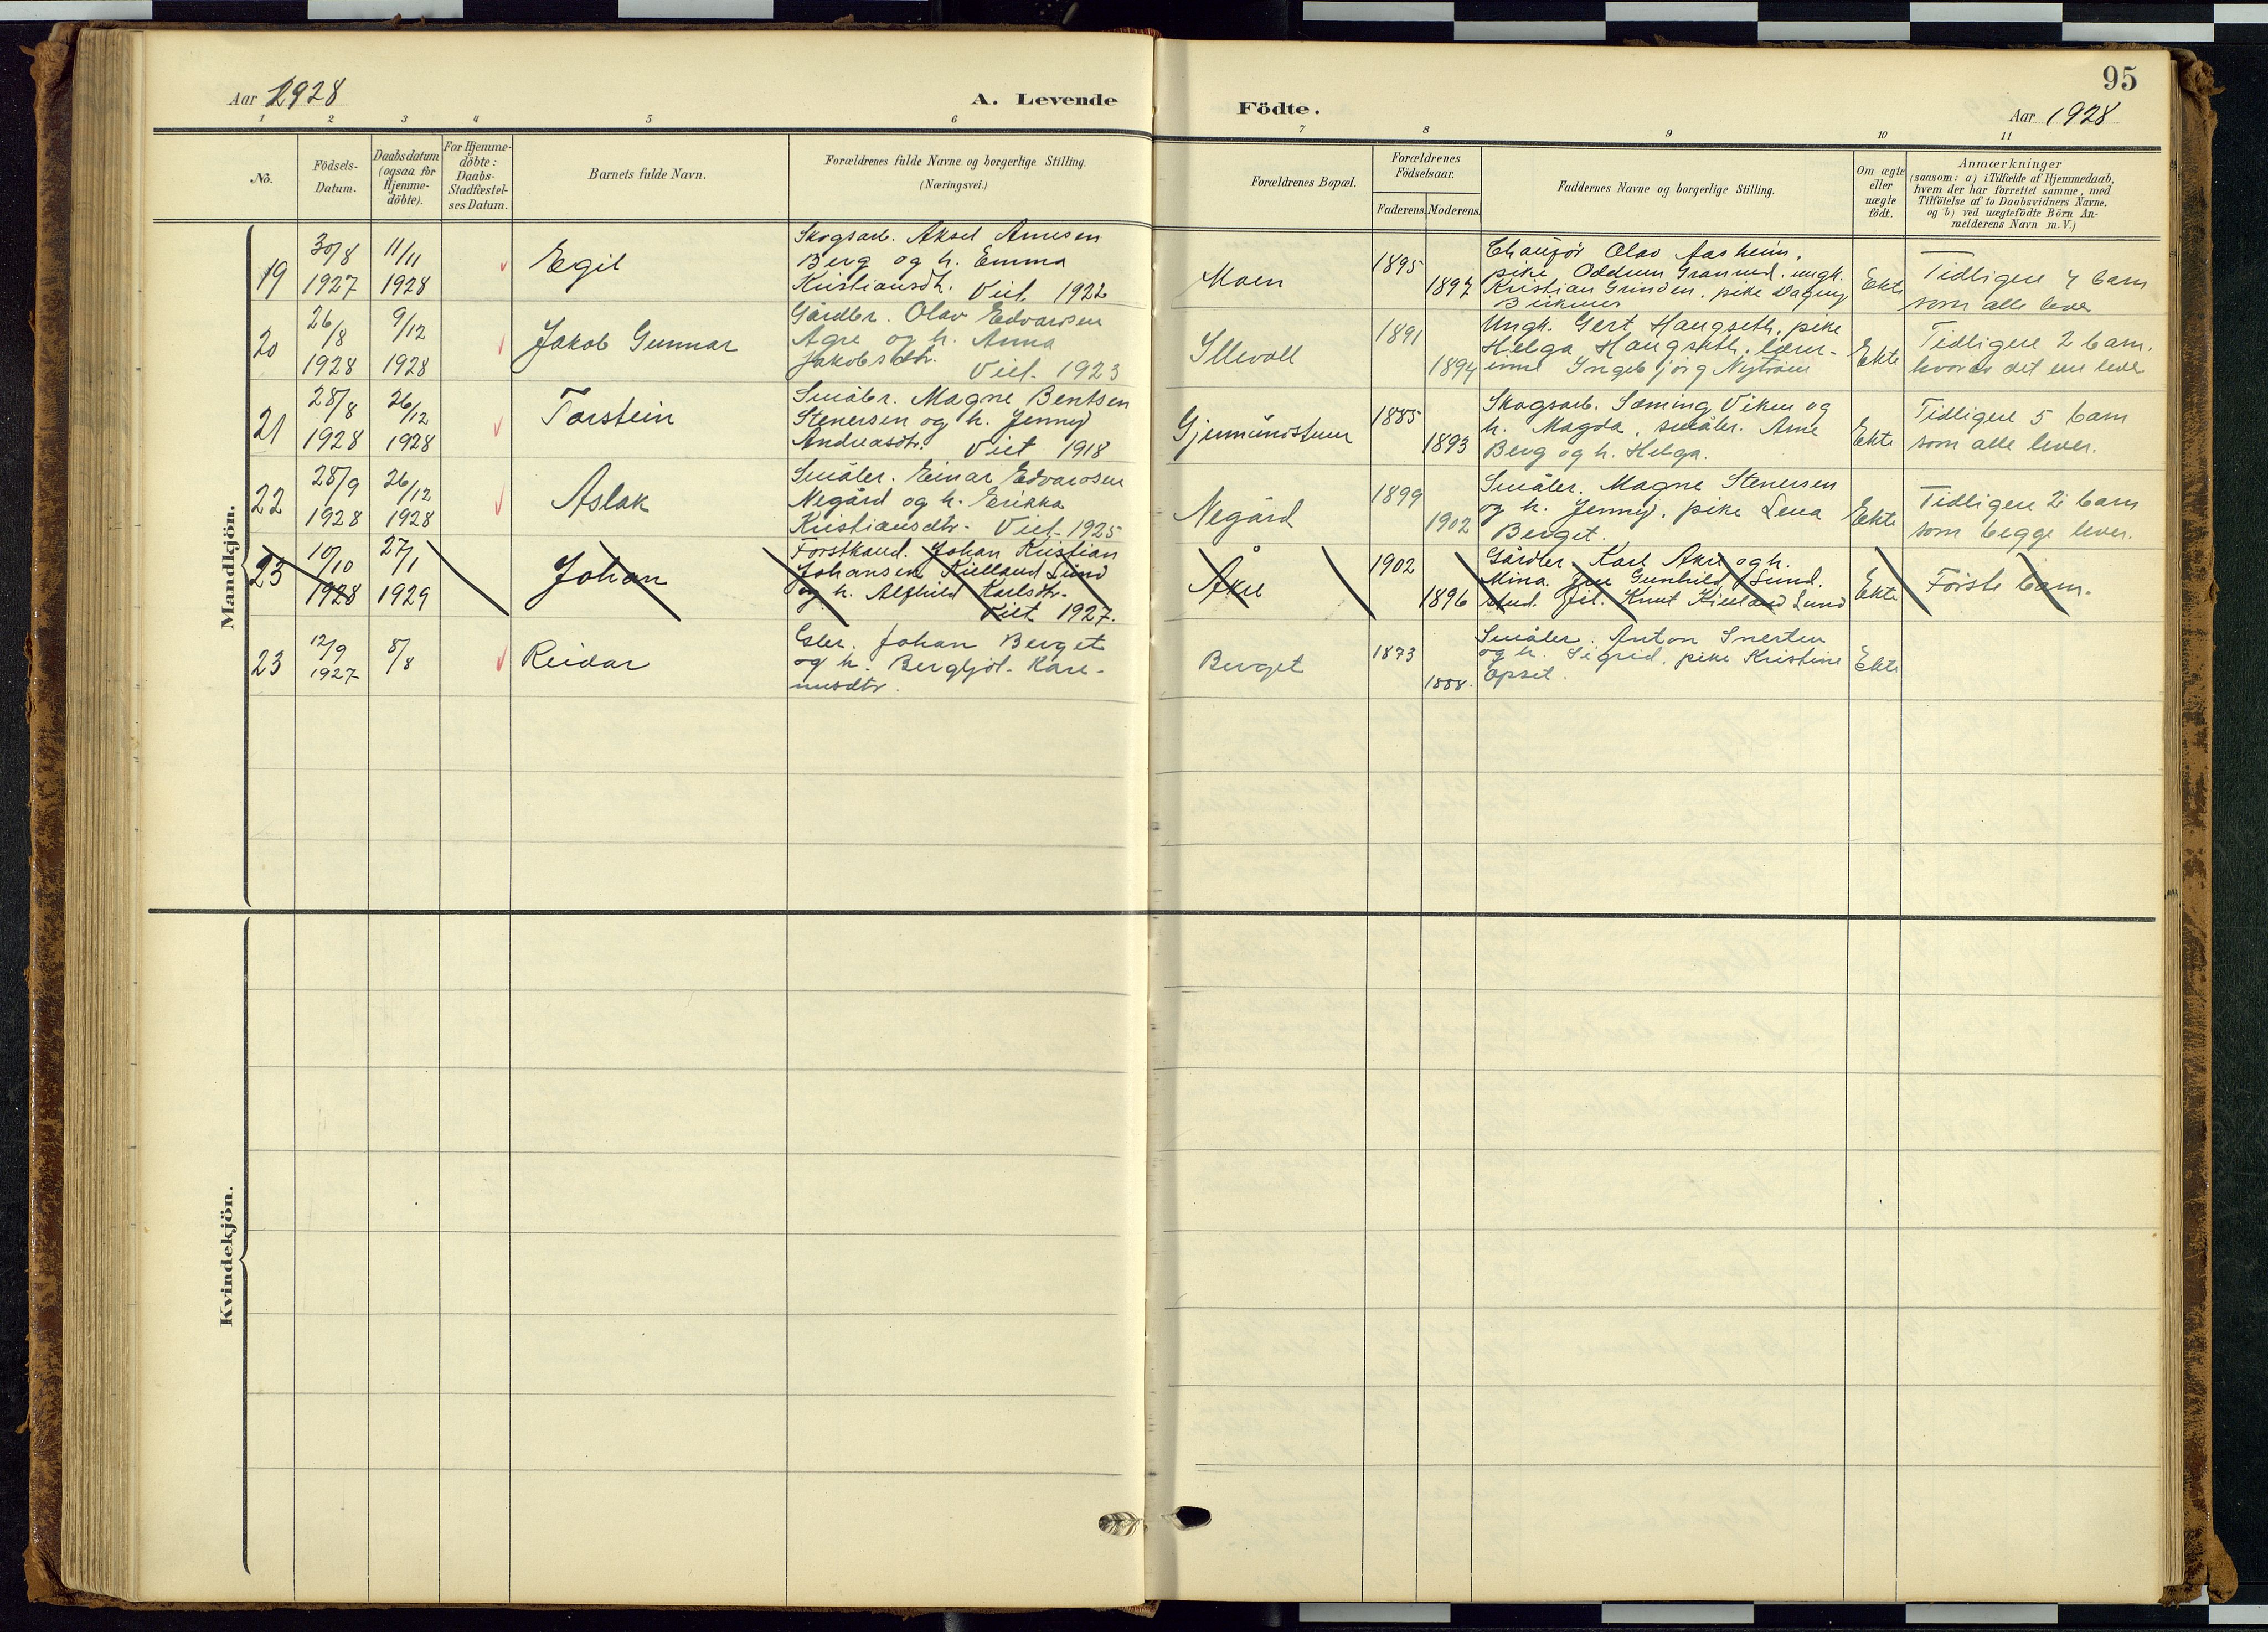 Aar 1928
A. Levende
Födte.
95
Aar 1928
1 2 3 4 5 6 7 8 9 10 11
No.
Födsels-
Datum.
Daabsdatum
(ogsaa for
Hjemme-
döbte).
For Hjemme-
döbte:
Daabs-
Stadfæstel-
ses Datum.
Barnets fulde Navn.
Forældrenes fulde Navne og borgerlige Stilling.
(Næringsvei.)
Forældrenes Bopæl.
Forældrenes
Födselsaar.
Faderens. Moderens.
Faddernes Navne og borgerlige Stilling.
Om ægte
eller
uægte
födt.
Anmærkninger
(saasom: a) i Tilfælde af Hjemmedaab,
hvem der har forrettet samme, med
Tilföielse af to Daabsvidners Navne,
og b) ved uægtefödte Börn An-
melderens Navn m. V.)
Mandkjön.
19
30/8
1927
11/11
1928
Egil
Skogsarb. Aksel Arnesen
Berg og h. Emma
Kristiansdt. Viet 1922
Moen
1895
1897
Chaufør Olav Aasheim,
pike Oddrun Granrud, ungk.
Kristian Grinden, pike Dagny
Ekte
Tidligere 4 barn
som alle lever
20
26/8
1928
9/12
1928
Jakob Gunnar
Gårdbr. Olav Edvardsen
Agre og h. Anna
Jakobsdtr. Viet 1923
Illevoll
1891
1894
Ungk. Gert Haugseth, pike
Helga Haugseth, lærer-
inne Ingebjørg Nystrøm
Ekte
Tidligere 2 barn.
hvorav det ene lever
21
28/8
1928
26/12
1928
Torstein
Småbr. Magne Bentsen
Stenersen og h. Jenny
Andreasdtr. Viet 1918
Gjermundstuen
1885
1893
Skogsarb. Sæming Viken og
h. Magda, småbr. Arne
Berg og h. Helga.
Ekte
Tidligere 5 barn
som alle lever.
22
28/9
1928
26/12
1928
Aslak
Småbr. Einar Edvardsen
Negård og h. Erikka
Kristiansdtr. Viet 1925
Negård
1899
1902
Småbr. Magne Stenersen
og h. Jenny, pike Lena
Berget.
Ekte
Tidligere 2 barn
som begge lever.
23
10/10
1928
27/1
1929
Johan
Forstkand. Johan Kristian
Johansen Kielland Lund
og h. Alfhild Karlsdtr.
Viet 1927.
Åkre
1902
1896
Gårdbr. Karl Akre og h.
Mina. Fru Gunhild Lund.
stud. fil. Knut Kielland Lund
Ekte
Förste barn.
23
12/9
1927
8/8
Reidar
Gbr. Johan Berget
og h. Bergljot Kare-
nusdtr.
Berget
1873
1888.
Småbr. Anton Snerten
og h. Sigrid, pike Kristine
Opset.
Ekte
Kvindekjön.